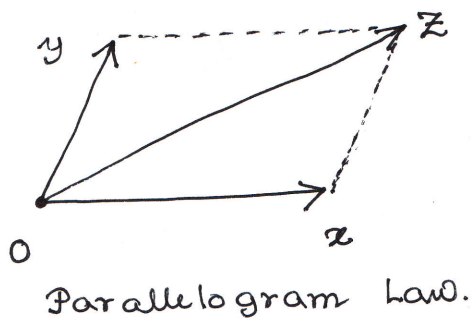 y
Z
O
x
Parallelogram Law.